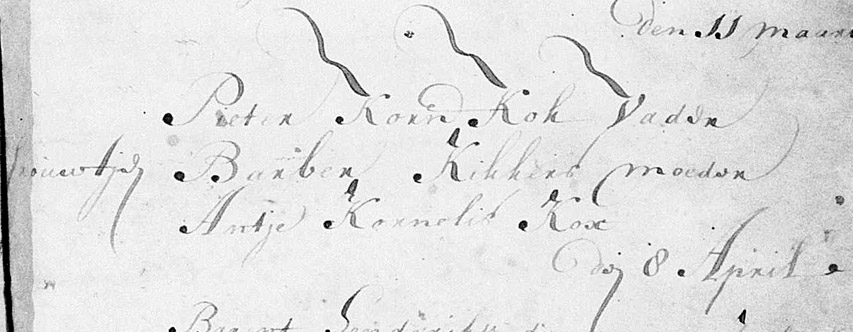 den 11 maart
Pieter Korn Kok Vader
vrouwtje Barber Kikkers moeder
Antje Kornelis Kox
den 8 April
Barent